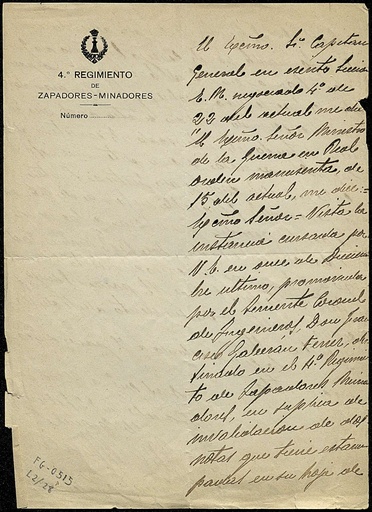 4.º REGIMIENTO
DE
ZAPADORES-MINADORES
Número
El Excmo. Sr. Capitan
General en escrito
E. M. negociado 4º de
22 del actual me dice
"El Excmo. Señor Ministro
de la Guerra en Real
orden manuscrita de
15 del actual, me dice:=
Excmo Señor= Vista la
instancia cursada por
V. E. en once de Diciem
bre ultimo, promovida
por el Teniente Coronel
de Ingenieros, Don Fran
cisco Galcerán Ferrer, des
tinado en el 4º Regimien
to de Zapadores Mina
dores, en suplica de
invalidacion de dos
notas que tiene estam
padas en su hoja de
FG-0515
L2/28